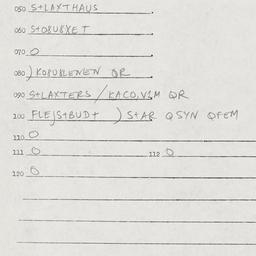 050 S+LAXTHAUS
060 S+OBUBXE T
070 O
080 ) KOPUBLENEN QR
090 S+LAXTERS / KACO,V1M QR
100 FLEJS+BUD+ ) S+AR QSYN QFEM
110 O
111 O 112 O
120 O